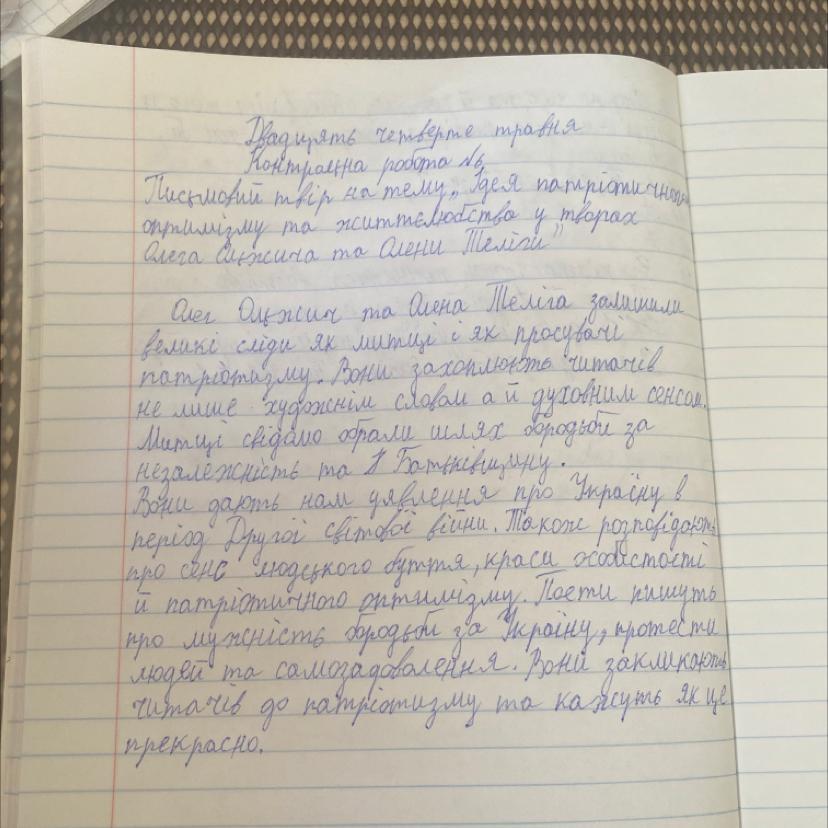 Двадцять четверте травня
Контрольна робота №6
Письмовий твір на тему „Ідея патріотичного
оптимізму та життєлюбства у творах
Олега Ольжича та Олени Теліги"
Олег Ольжич та Олена Теліга залишили
великі сліди як митці і як просувачі
патріотизму. Вони захоплюють читачів
не лише художнім словом а й духовним сенсом.
Митці свідомо обрали шлях бородьби за
незалежність та Батьківщину.
Вони дають нам уявлення про Україну в
період Другої світової війни. Також розповідають
про сенс людського буття, краси особистості
й патріотичного оптимізму. Поети пишуть
про мужність бородьби за Україну, протести
людей та самозадоволення. Вони закликають
читачів до патріотизму та кажуть як це
прекрасно.